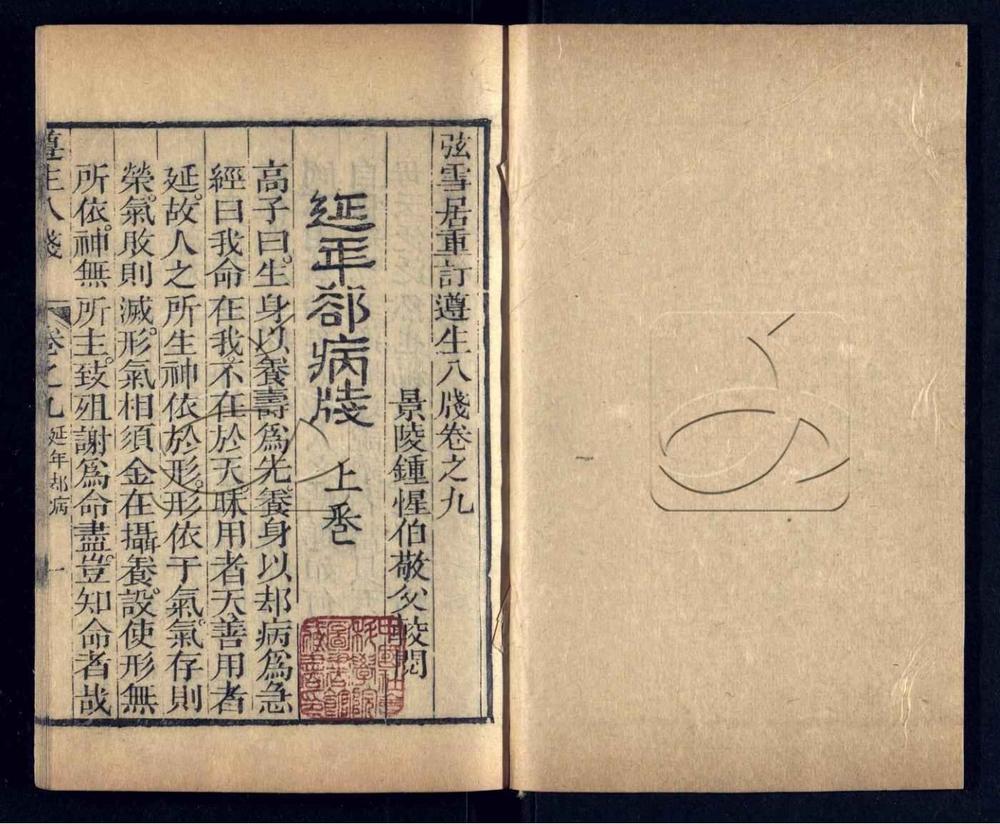 弦雪居重訂遵生八牋卷之九
景陵鍾惺伯敬父較閱
延年郤病牋 上卷
高子曰。生身以養壽爲先。養身以却病爲急
經曰我命在我。不在於天。昧用者夭善用者
延。故人之所生神依於形。形依于氣。氣存則
榮。氣敗則滅。形氣相須全在攝養。設使形無
所依。神無所主。致殂謝爲命盡。豈知命者哉
遵生八牋 卷之九 延年却病 一